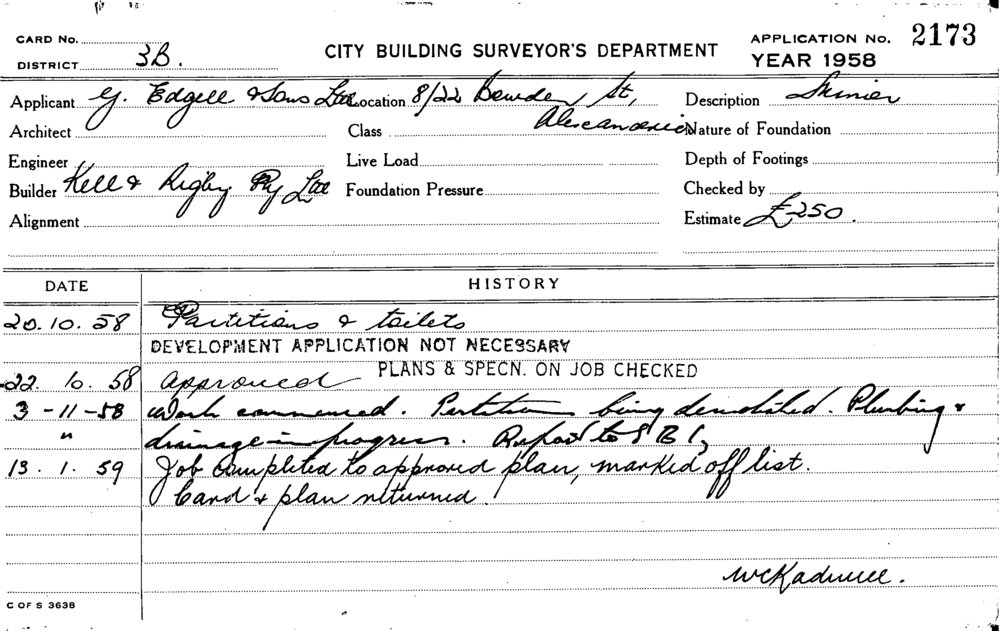 CARD No.
DISTRICT 3B.
CITY BUILDING SURVEYOR'S DEPARTMENT
APPLICATION No. 2173
YEAR 1958
Applicant G. Edgell & Sons Ltd Location 8/22 Bowden St, Description Minor
Architect Class Alexandria Nature of Foundation
Engineer Live Load Depth of Footings
Builder Kell & Rigby Pty Ltd Foundation Pressure Checked by
Alignment Estimate £250.
DATE HISTORY
20.10.58 Partitions & toilets
DEVELOPMENT APPLICATION NOT NECESSARY
PLANS & SPECN. ON JOB CHECKED
22.10.58 Approved
3-11-58 Work commenced. Partitions being demolished. Plumbing &
" drainage in progress. Report to
13.1.59 Job completed to approved plan, marked off list.
Card & plan returned.
C OF S 3638